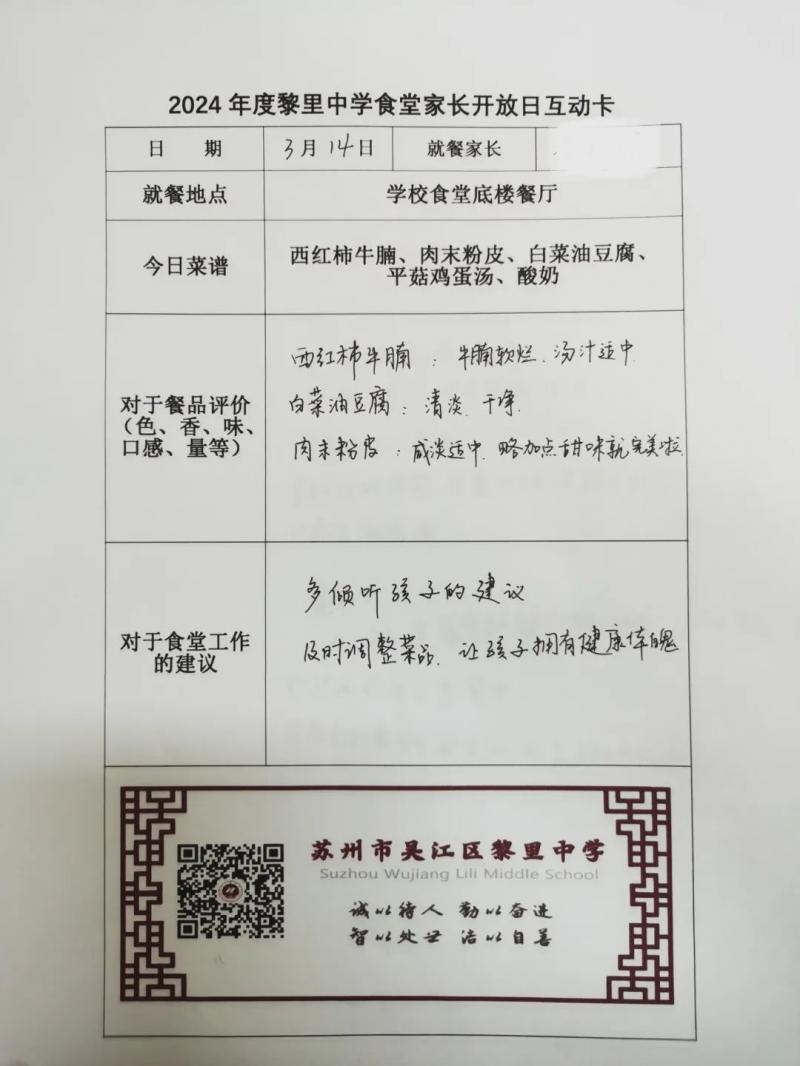 2024 年度黎里中学食堂家长开放日互动卡
日 期 3月14日 就餐家长
就餐地点 学校食堂底楼餐厅
今日菜谱
西红柿牛腩、肉末粉皮、白菜油豆腐、
平菇鸡蛋汤、酸奶
对于餐品评价
(色、香、味、
口感、量等)
西红柿牛腩：牛腩软烂、汤汁适中
白菜油豆腐：清淡、干净.
肉末粉皮：咸淡适中、略加点甜味就完美啦
对于食堂工作
的建议
多倾听孩子的建议
及时调整菜品、让孩子拥有健康体魄
苏州市吴江区黎里中学
Suzhou Wujiang Lili Middle School
诚以待人 勤以奋进
智以处世 洁以自善